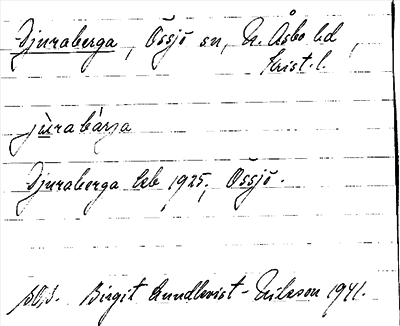 Djuraberga, Össjö sn, N. Åsbo hd,
Krist. l.
jùrabárja
Djuraberga bebl 1925, Össjö.
Birgit Lundkvist-Nilsson 1941.